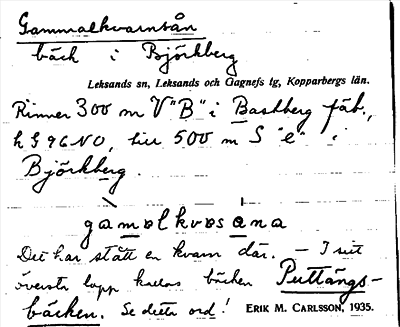 Gammalkvarnsån
bäck i Björkberg
Leksands sn, Leksands och Gagnefs tg, Kopparbergs län.
Rinner 300 m V "B" i Bastberg fäb.,
h S 96 NO, till 500 m S "e" i
Björkberg.
gamalkvɑsǡna
Det har stått en kvarn där. – I sitt
översta lopp kallas bäcken Puttängs-
bäcken. Se detta ord! ERIK M. CARLSSON, 1935.